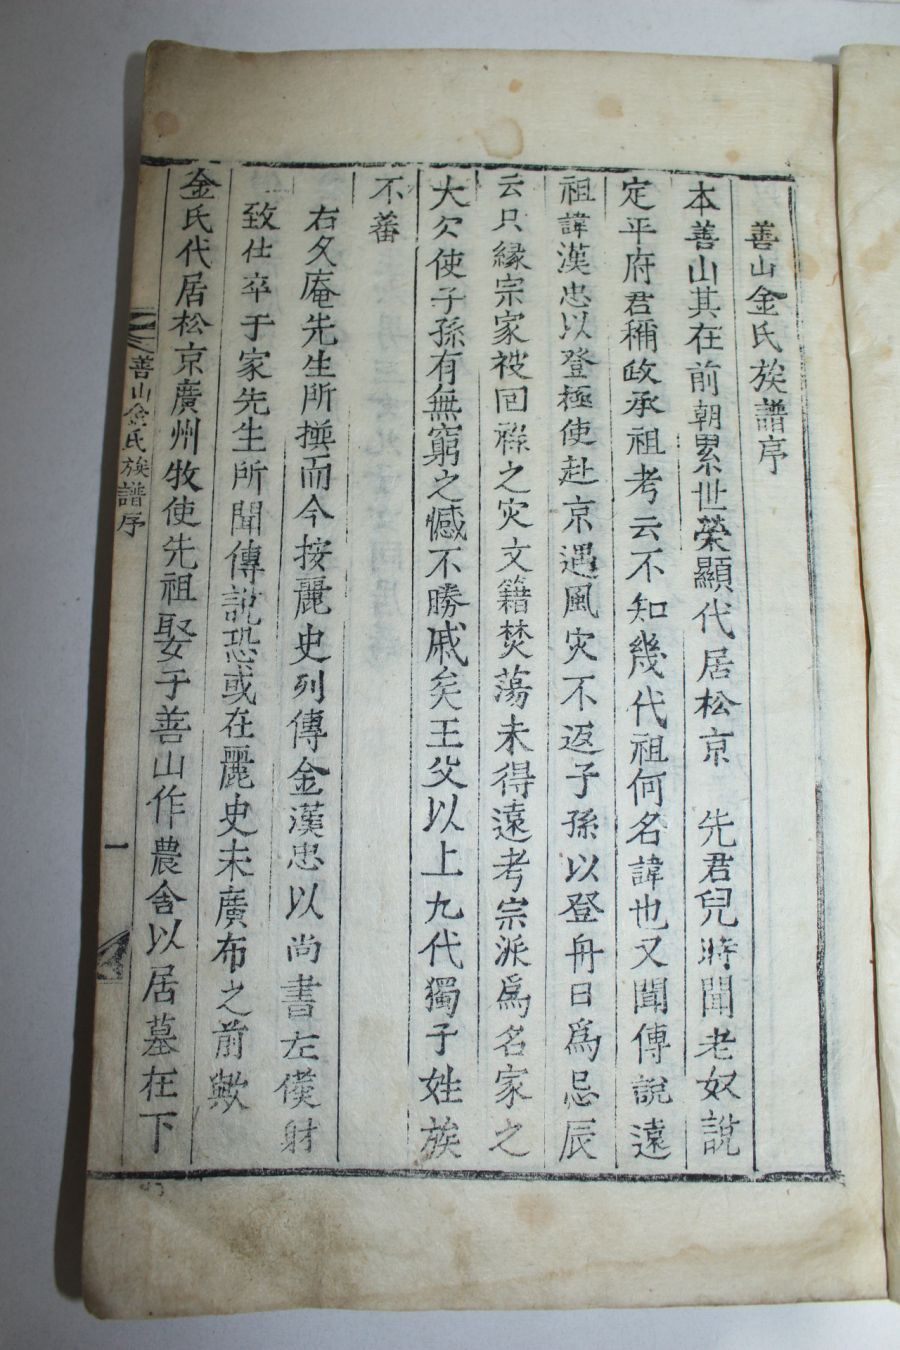 善山金氏族譜序
本善山其在前朝累世榮顯代居松京 先君兒時聞老奴說
定平府君稱政承祖考云不知幾代祖何名諱也又聞傳說遠
祖諱漢忠以登極使赴京遇風灾不返子孫以登舟日爲忌辰
云只緣宗家被回祿之灾文籍焚蕩未得遠考宗派爲名家之
大欠使子孫有無窮之憾不勝戚矣王父以上九代獨子姓族
不蕃
右久庵先生所撰而今按麗史列傳金漢忠以尚書左僕射
致仕卒于家先生所聞傳說恐或在麗史未廣布之前歟
金氏代居松京廣州牧使先祖娶于善山作農舍以居墓在下
善山金氏族譜序 一